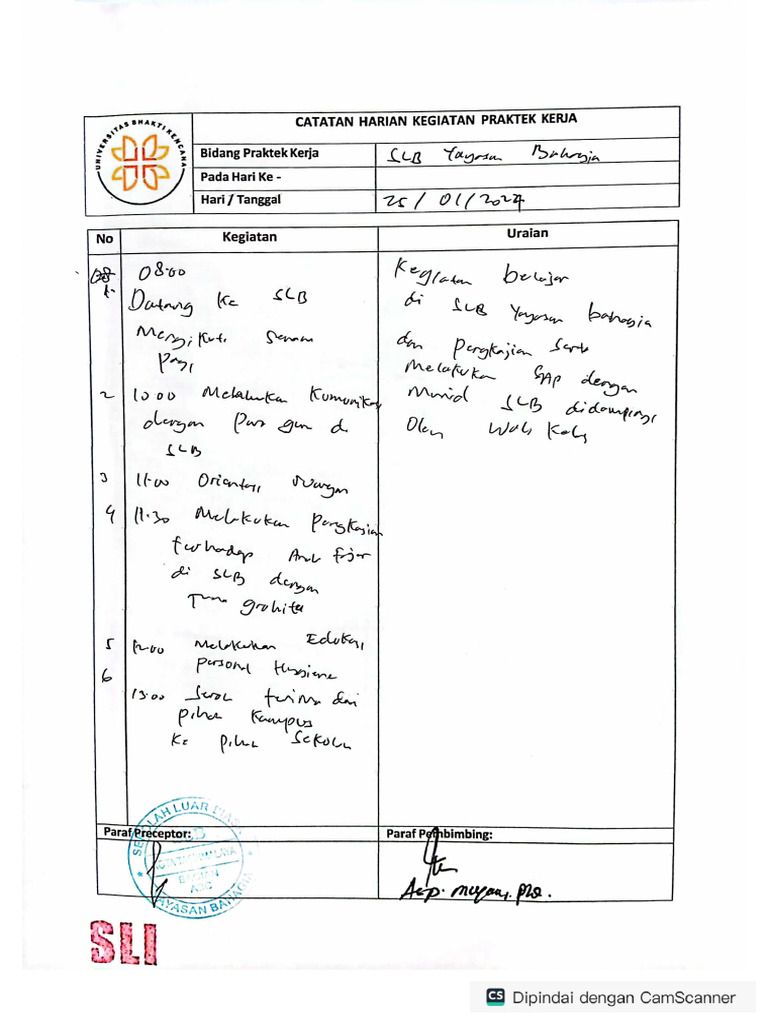 UNIVERSITAS BHAKTI KENCANA
CATATAN HARIAN KEGIATAN PRAKTEK KERJA
Bidang Praktek Kerja SLB Yayasan Bahagia
Pada Hari Ke -
Hari / Tanggal 25 / 01 / 2024
No Kegiatan Uraian
08.00
Datang Ke SLB
Mengikuti Senam
Pagi
2 10.00 Melakukan Komunikasi
dengan Para guru di
SLB
3 11.00 Orientasi ruangan
4 11.30 Melakukan Pengkajian
terhadap Anak Fajar
di SLB dengan
Tuna grahita
5 12.00 Melakukan Edukasi
personal Hygiene
6
13.00 Serah terima dari
pihak Kampus
Ke pihak Sekolah
Kegiatan belajar
di SLB Yayasan bahagia
dan Pengkajian Serta
Melakukan SAP dengan
Murid SLB didampingi
Oleh Wali Kelas
Paraf Preceptor: Paraf Pembimbing:
SEKOLAH LUAR BIASA
YAYASAN BAHAGIA
SLI
CS Dipindai dengan CamScanner